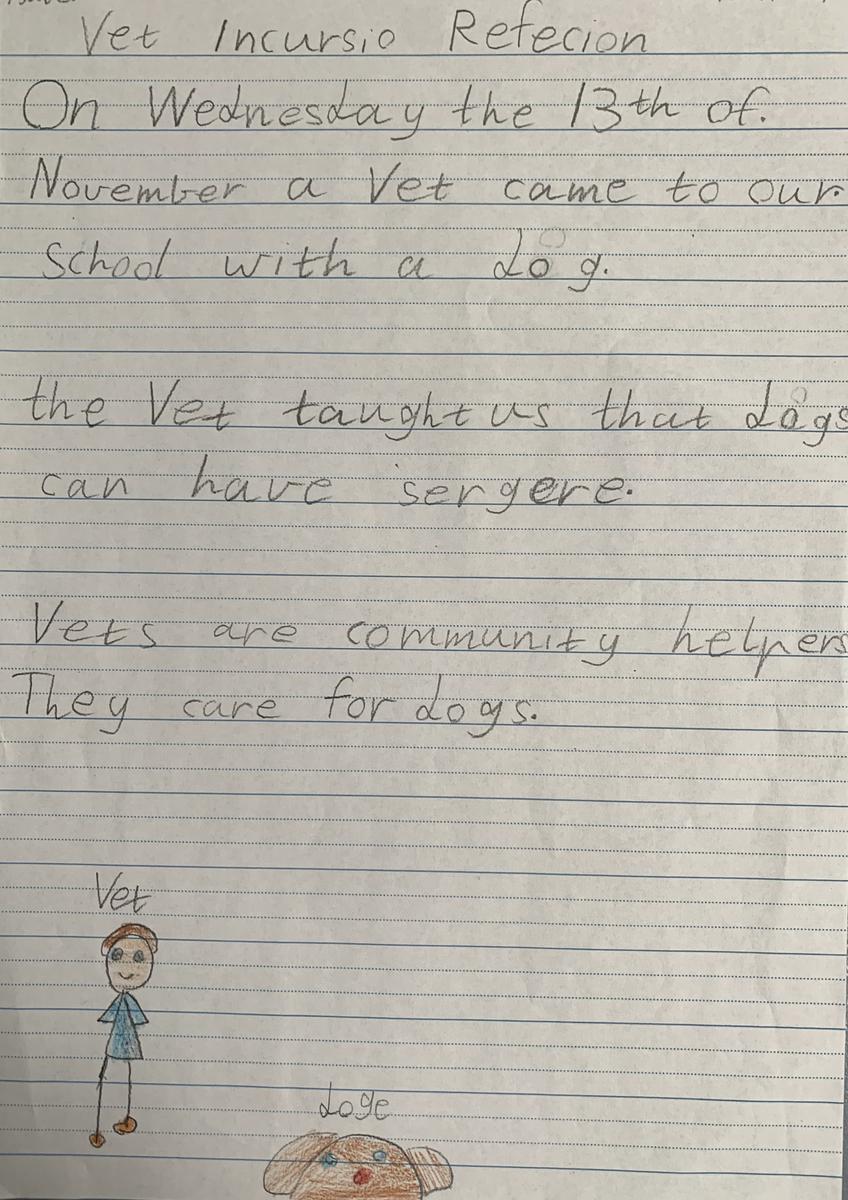 Vet Incursio Refecion
On Wednesday the 13th of.
November a Vet came to our.
School with a dog.
the Vet taught us that dogs
can have sergere.
Vets are community helpers
They care for dogs.
Vet
doge